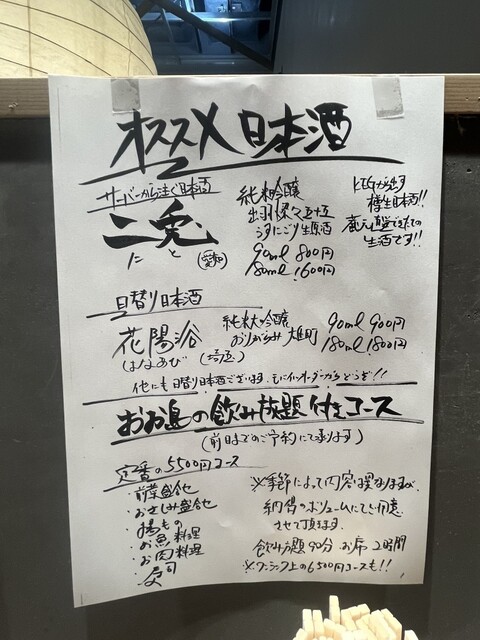 オススメ日本酒
サーバーから注ぐ日本酒
二兎
にと
(愛知)
純米吟醸
出羽燦々五十五
うすにごり生原酒
90ml 800円
180ml 1600円
KEGから出す
樽生日本酒!!
蔵元直送できたての
生酒です!!
日替り日本酒
花陽浴
はなあび (埼玉)
純米大吟醸
おりがらみ 雄町
90ml 900円
180ml 1800円
他にも日替り日本酒ございます。モバイルオーダーからどうぞ!!
おお島の飲み放題付きコース
(前日までのご予約にて承ります)
定番の5500円コース
・前菜盛合せ
・おさしみ盛合せ
・揚もの
・お魚料理
・お肉料理
・寿司
※季節によって内容は異なりますが、
納得のボリュームにてご用意
させて頂きます。
飲み放題90分 お席2時間
※ワンランク上の6500円コースも!!